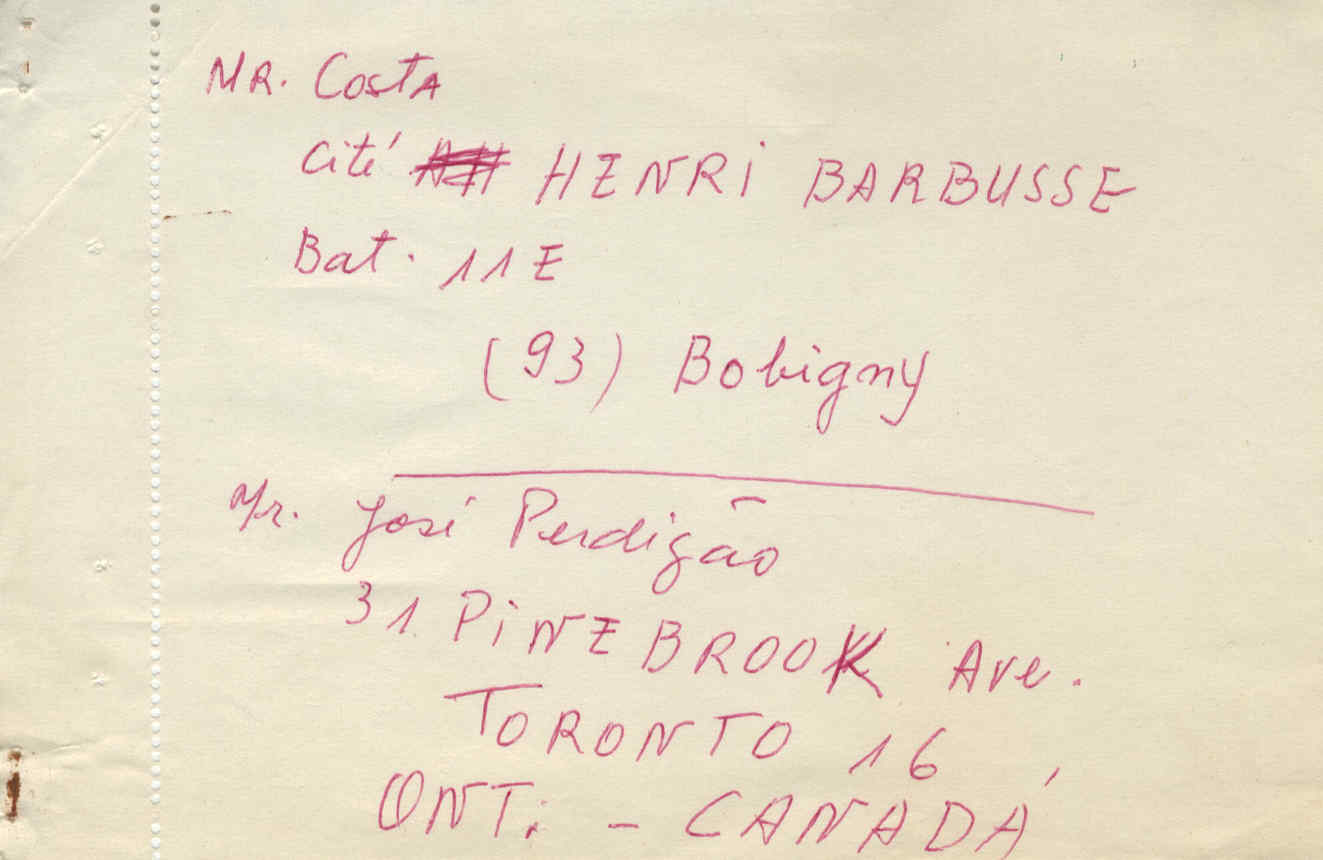 MR. Costa
Cité HENRi BARBUSSE
Bat. 11E
(93) Bobigny
Mr. José Perdigão
31 PiNEBROOK Ave.
TORONTO 16,
ONT. - CANADÁ